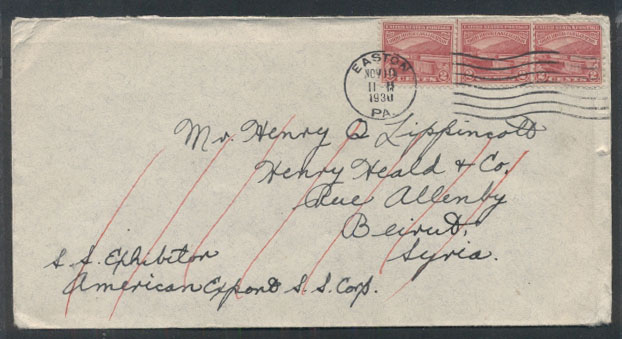 EASTON
NOV 10
11-
1930
PA.
2 CENTS 2
Mr. Henry Q Lippincott
Henry Heald & Co.
Rue Allenby
Beirut,
Syria.
S. S. Exhibitor
American Export S. S. Corp.